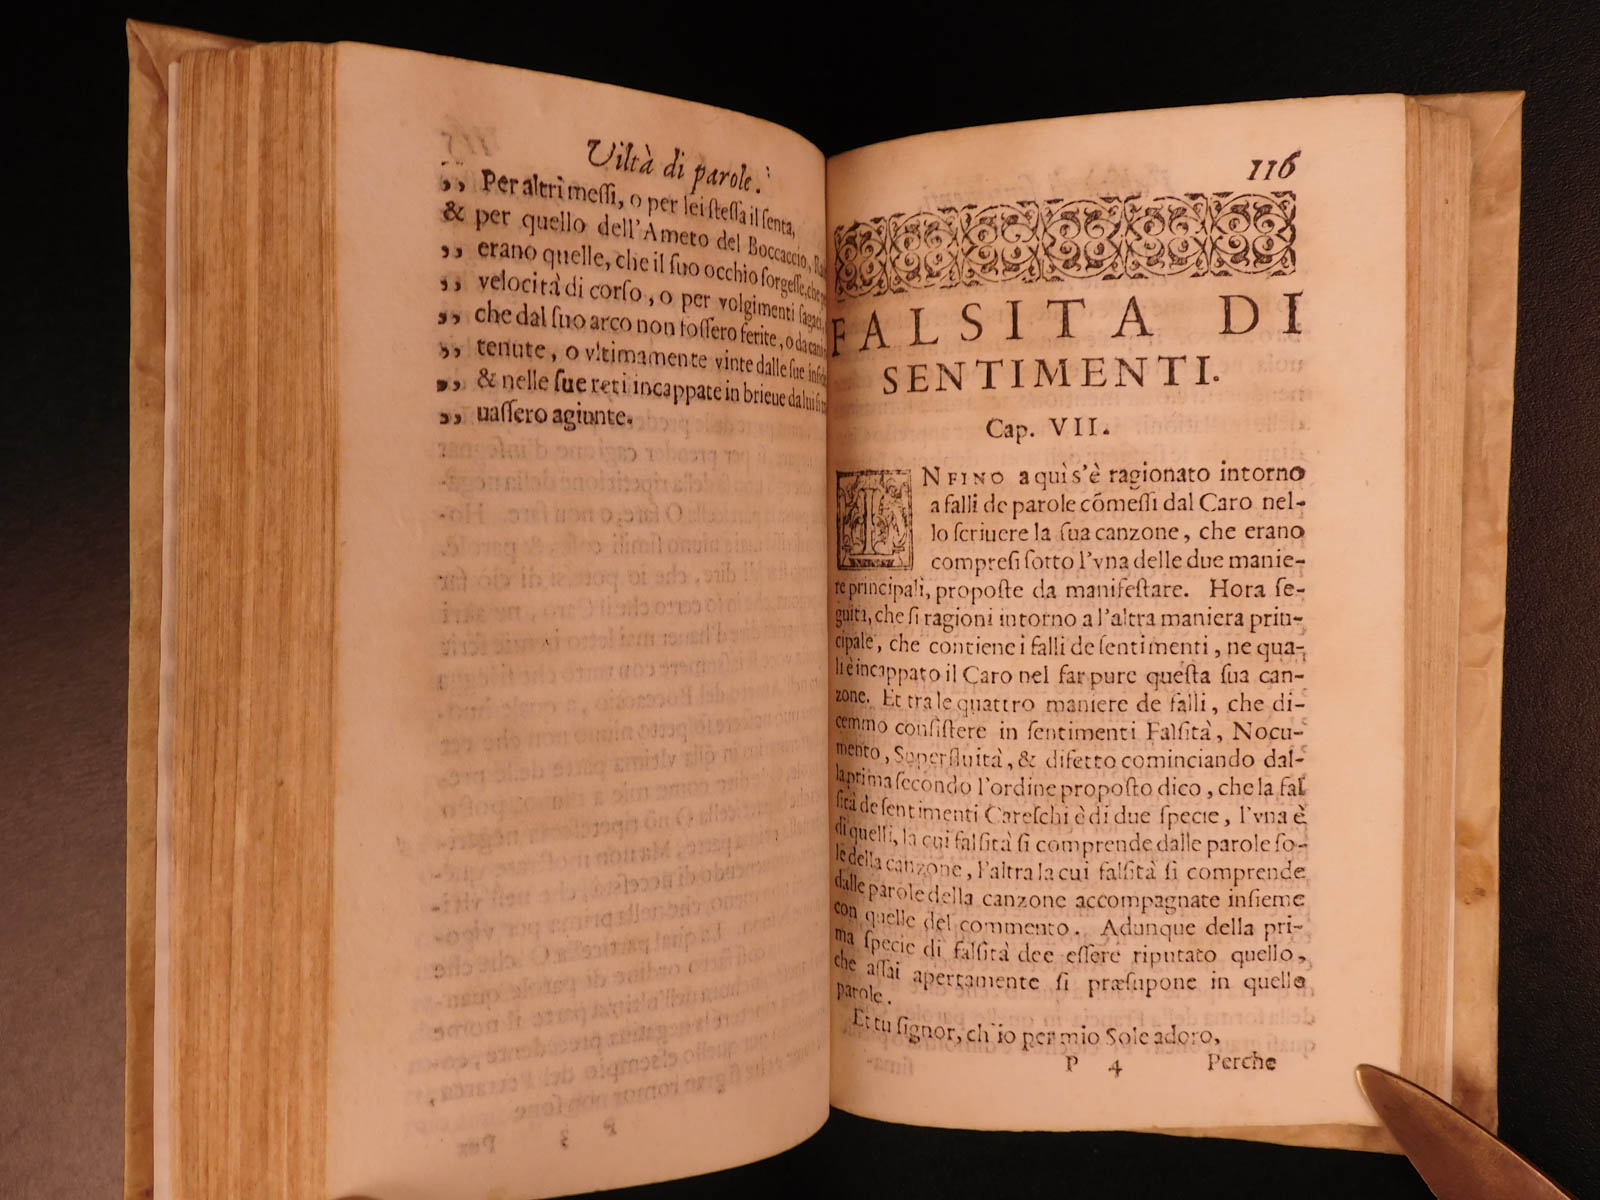 Viltà di parole.
,, Per altri messi, o per lei ſteſſa il ſenta,
& per quello dell'Ameto del Boccaccio,
,, erano quelle, che il ſuo occhio ſorgeſſe, che
,, velocità di corſo, o per volgimenti ſagaci,
,, che dal ſuo arco non foſſero ferite, o da
,, tenute, o vltimamente vinte dalle ſue
,, & nelle ſue reti incappate in brieue da lui
,, uaſſero agiunte.
116
FALSITA DI
SENTIMENTI.
Cap. VII.
INFINO a quì s'è ragionato intorno
a falli de parole cōmeſſi dal Caro nel-
lo ſcriuere la ſua canzone, che erano
compreſi ſotto l'vna delle due manie-
re principali, propoſte da manifeſtare. Hora ſe-
guita, che ſi ragioni intorno a l'altra maniera prin-
cipale, che contiene i falli de ſentimenti, ne qua-
li è incappato il Caro nel far pure queſta ſua can-
zone. Et tra le quattro maniere de falli, che di-
cemmo conſiſtere in ſentimenti Falſità, Nocu-
mento, Superfluità, & difetto cominciando dal-
la prima ſecondo l'ordine propoſto dico, che la fal
ſità de ſentimenti Careſchi è di due ſpecie, l'vna è
di quelli, la cui falſità ſi comprende dalle parole ſo-
le della canzone, l'altra la cui falſità ſi comprende
dalle parole della canzone accompagnate inſieme
con quelle del commento. Adunque della pri-
ma ſpecie di falſità dee eſſere riputato quello,
che aſſai apertamente ſi præſupone in quelle
parole.
Et tu ſignor, ch'io per mio Sole adoro,
P 4 Perche